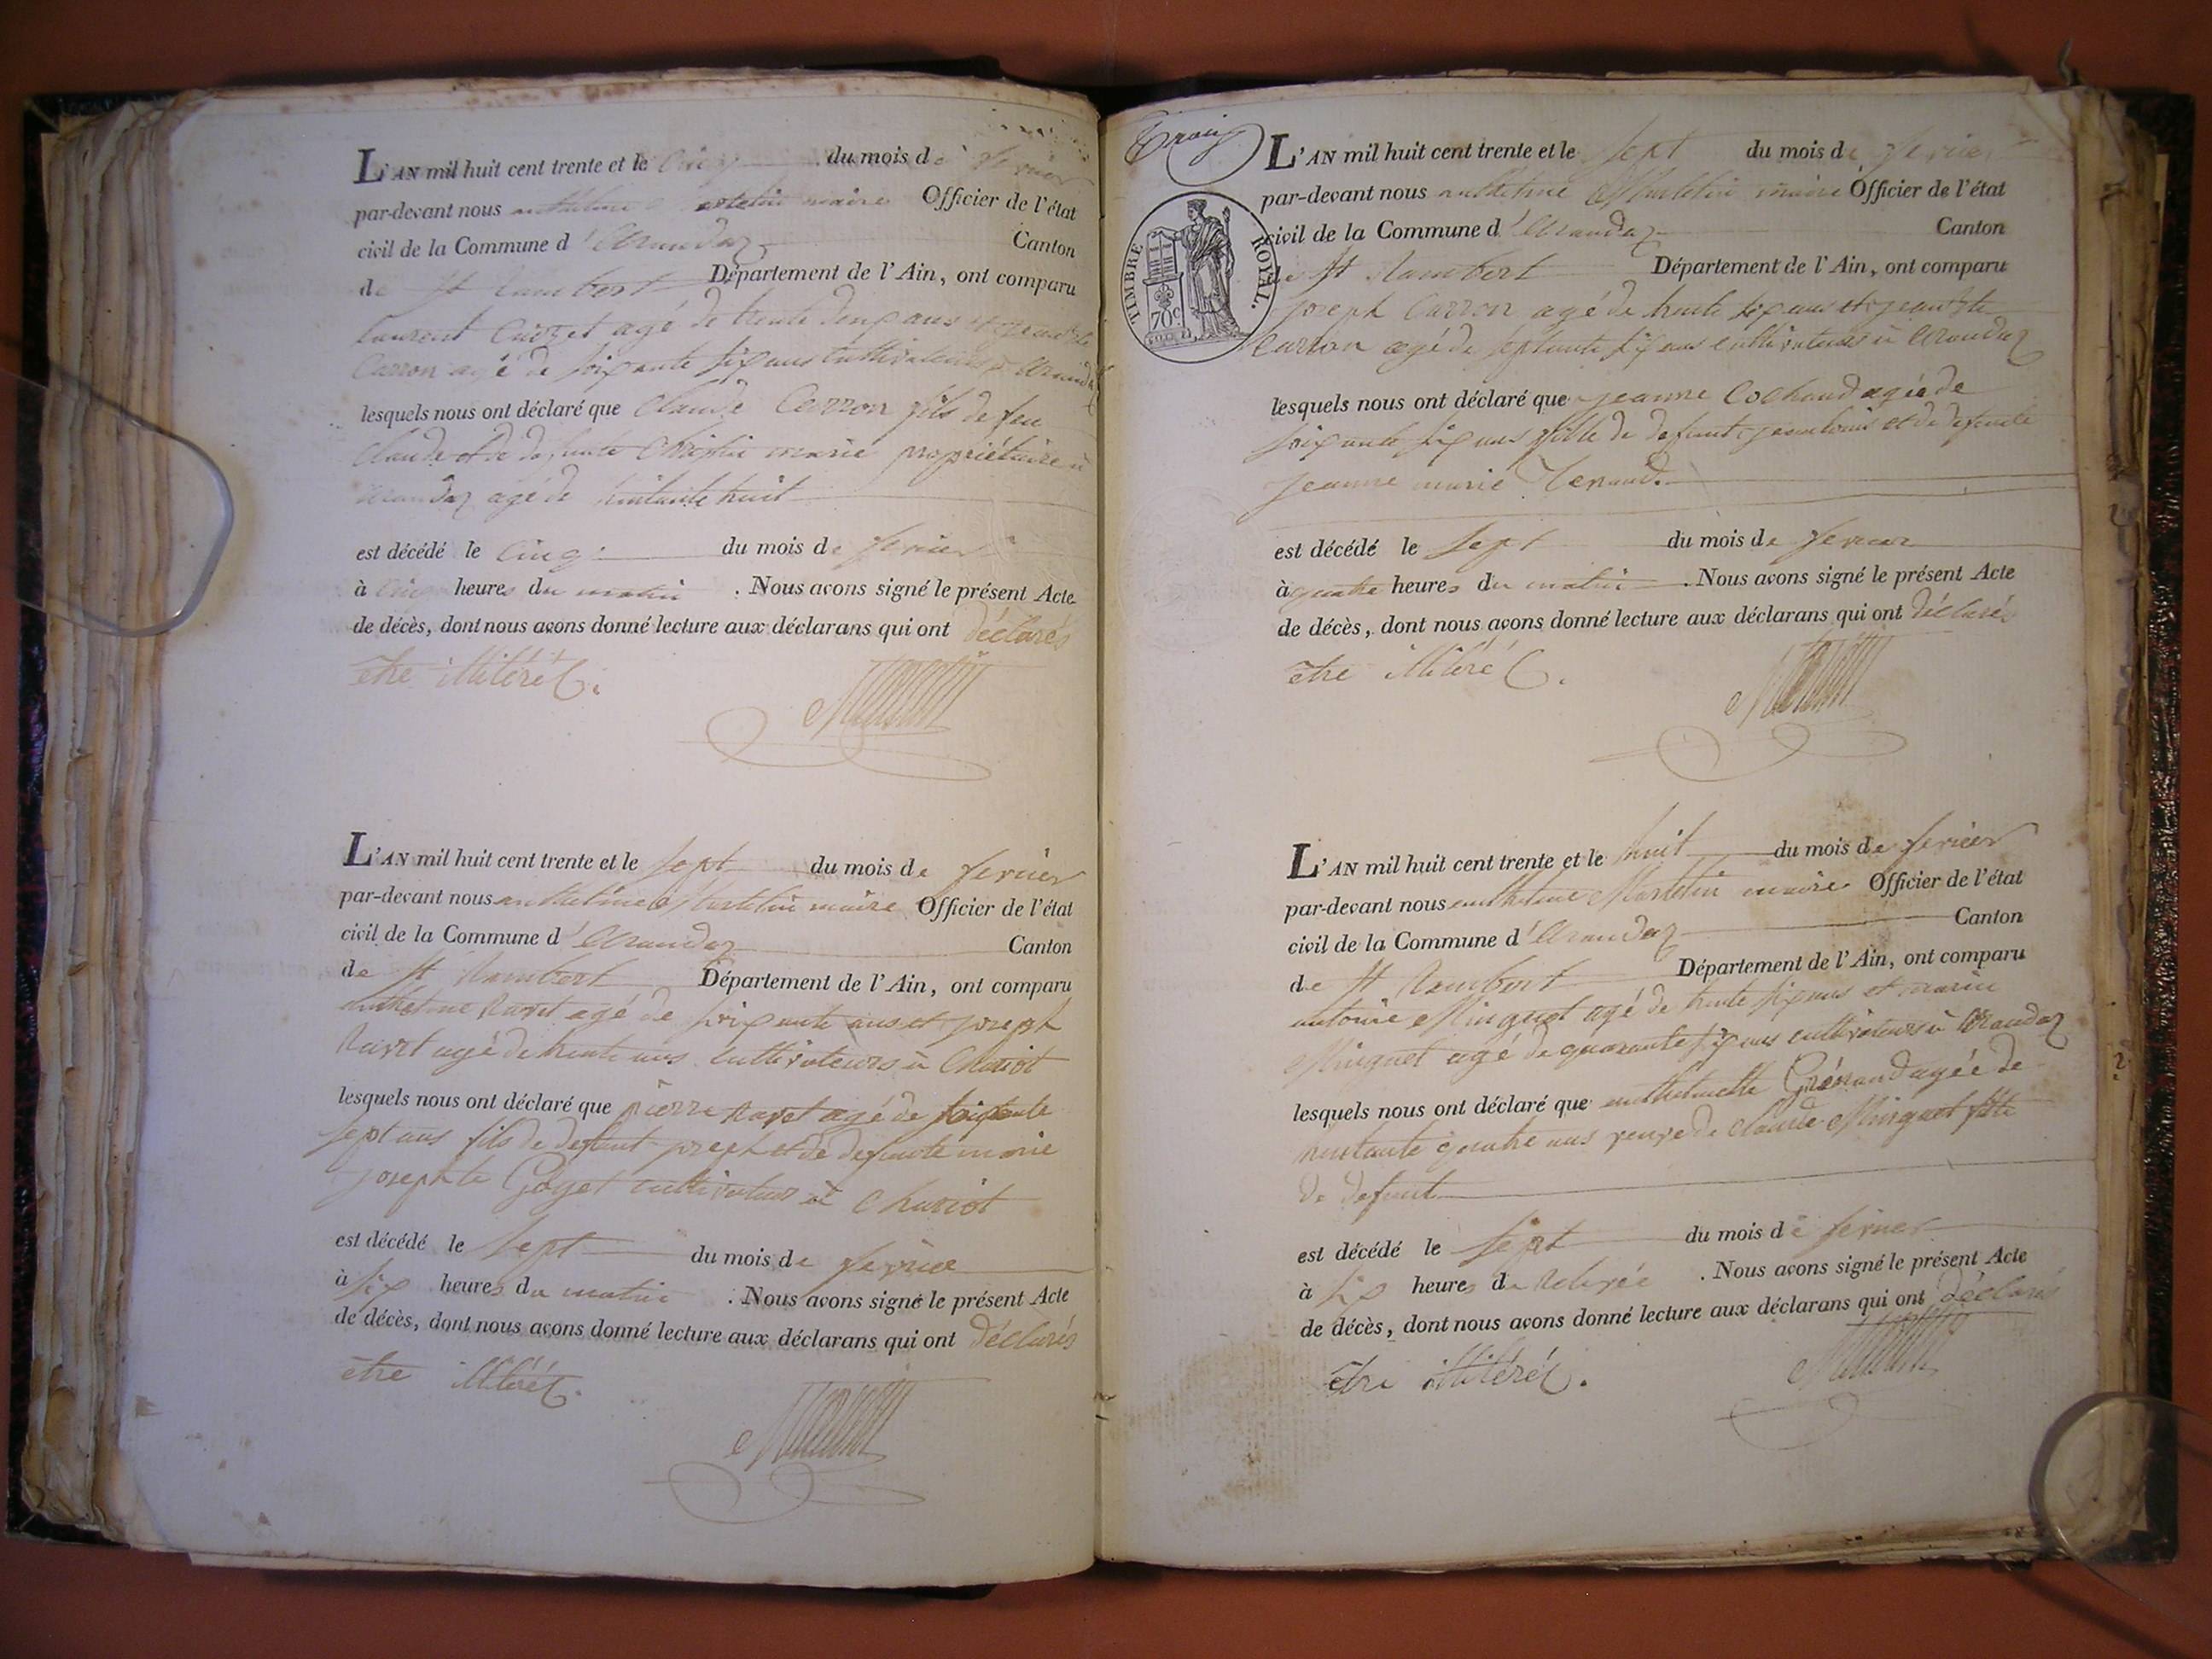 L'AN mil huit cent trente et le cinq du mois de fevrier
par-devant nous anthelme Martelin maire Officier de l'état
civil de la Commune d'Arandaz Canton
de St Rambert Département de l'Ain, ont comparu
laurent Cuozet agé de trente deux ans et
Carron agé de soixante six ans cultivateurs à Arandaz
lesquels nous ont déclaré que Claude Carron fils de feu
Claude et de defunte marie propriétaire à
Arandaz agé de huitante huit
est décédé le cinq du mois de fevrier
à cinq heures du matin . Nous avons signé le présent Acte
de décès, dont nous avons donné lecture aux déclarans qui ont déclarés
etre illitéré
L'AN mil huit cent trente et le sept du mois de fevrier
par-devant nous anthelme Martelin maire Officier de l'état
civil de la Commune d'Arandaz Canton
de St Rambert Département de l'Ain, ont comparu
anthelme Ravet agé de soixante ans et joseph
Ravet agé de trente ans cultivateurs à Chariot
lesquels nous ont déclaré que pierre Ravet agé de soixante
sept ans fils de defunt joseph et de defunte marie
josephte Goyet cultivateur à Chariot
est décédé le sept du mois de fevrier
à six heures du matin . Nous avons signé le présent Acte
de décès, dont nous avons donné lecture aux déclarans qui ont déclarés
etre illitéré
Trois
TIMBRE ROYAL.
70c
L'AN mil huit cent trente et le sept du mois de fevrier
par-devant nous anthelme Martelin maire Officier de l'état
civil de la Commune d'Arandaz Canton
de St Rambert Département de l'Ain, ont comparu
joseph Carron agé de trente six ans et jean Bte
Carron agé de septante six ans cultivateurs à Arandaz
lesquels nous ont déclaré que jeanne Cochaud agée de
soixante six ans fille de defunt jean louis et de defunte
jeanne marie Tenand.
est décédé le sept du mois de fevrier
à quatre heures du matin . Nous avons signé le présent Acte
de décès, dont nous avons donné lecture aux déclarans qui ont déclarés
etre illitéré
L'AN mil huit cent trente et le huit du mois de fevrier
par-devant nous anthelme Martelin maire Officier de l'état
civil de la Commune d'Arandaz Canton
de St Rambert Département de l'Ain, ont comparu
antoine Minguet agé de trente six ans et marin
Minguet agé de quarante six ans cultivateurs à Arandaz
lesquels nous ont déclaré que anthelmette Grénaud agée de
huitante quatre ans veuve de Claude Minguet fille
de defunt
est décédé le sept du mois de fevrier
à six heures de Relevée . Nous avons signé le présent Acte
de décès, dont nous avons donné lecture aux déclarans qui ont déclarés
etre illitéré